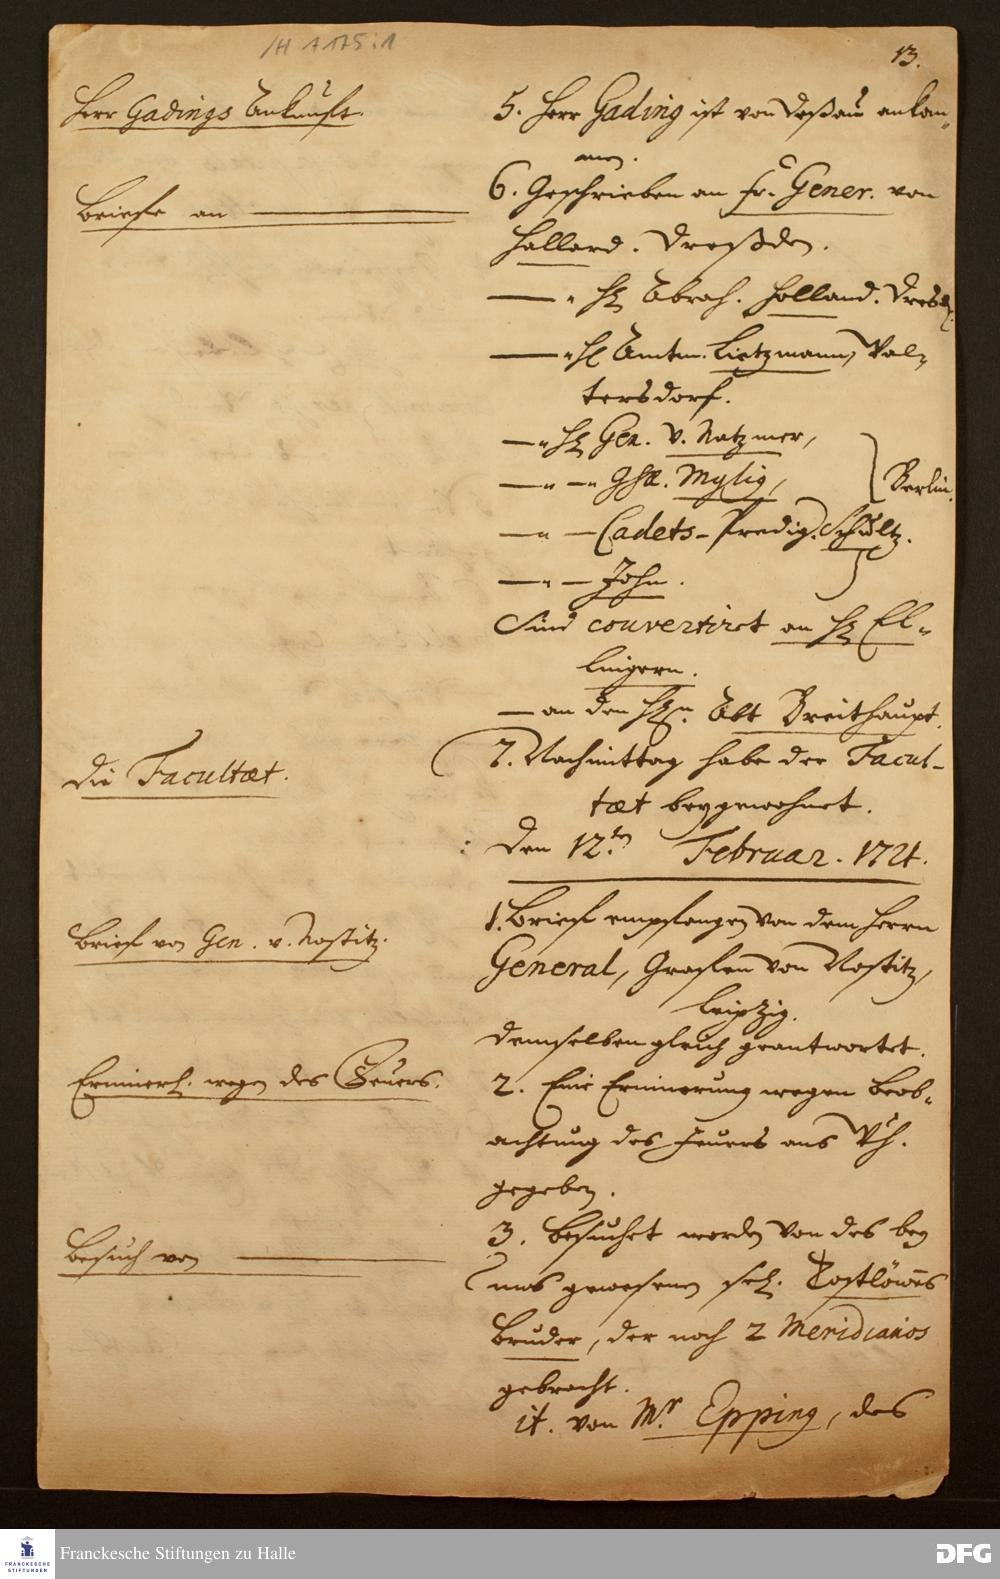 /H A 175:1
13.
Herr Gadings Ankunfft.
5. Herr Gading ist von Deßau ankom¬
men.
Briefe an
6. Geschrieben an Fr. Gener. von
Hallard. Dreßden.
— " H Abrah. Holland. Dresd.
— " H Amtm. Lietzmann, Wal¬
tersdorf.
— " H Gen. v. Natzmer,
— " — GhR. Mylig,
Berlin.
— " — Cadets-Predig. Schultz.
— " — John.
Sind couvertirt an H El¬
lingern.
— an den Hn. Abt Breithaupt.
Die Facultæt.
7. Nachmittag habe der Facul-
tæt beygewohnet.
Den 12.ten Februar. 1721.
Brief von Gen. v. Nostitz.
1. Brief empfangen von dem Herrn
General, Grafen von Nostitz,
Leipzig.
demselben gleich geantwortet.
Erinnerh. wegen des Feuers.
2. Eine Erinnerung wegen Beob¬
achtung des Feuers ans Wh.
gegeben.
Besuch von
3. Besuchet worden von des bey
uns gewesenen sel. Postlöwens
Bruder, der noch 2 Meridianos
gebracht.
it. von Mr. Epping, des
Franckesche Stiftungen zu Halle
FRANCKESCHE
STIFTUNGEN
DFG